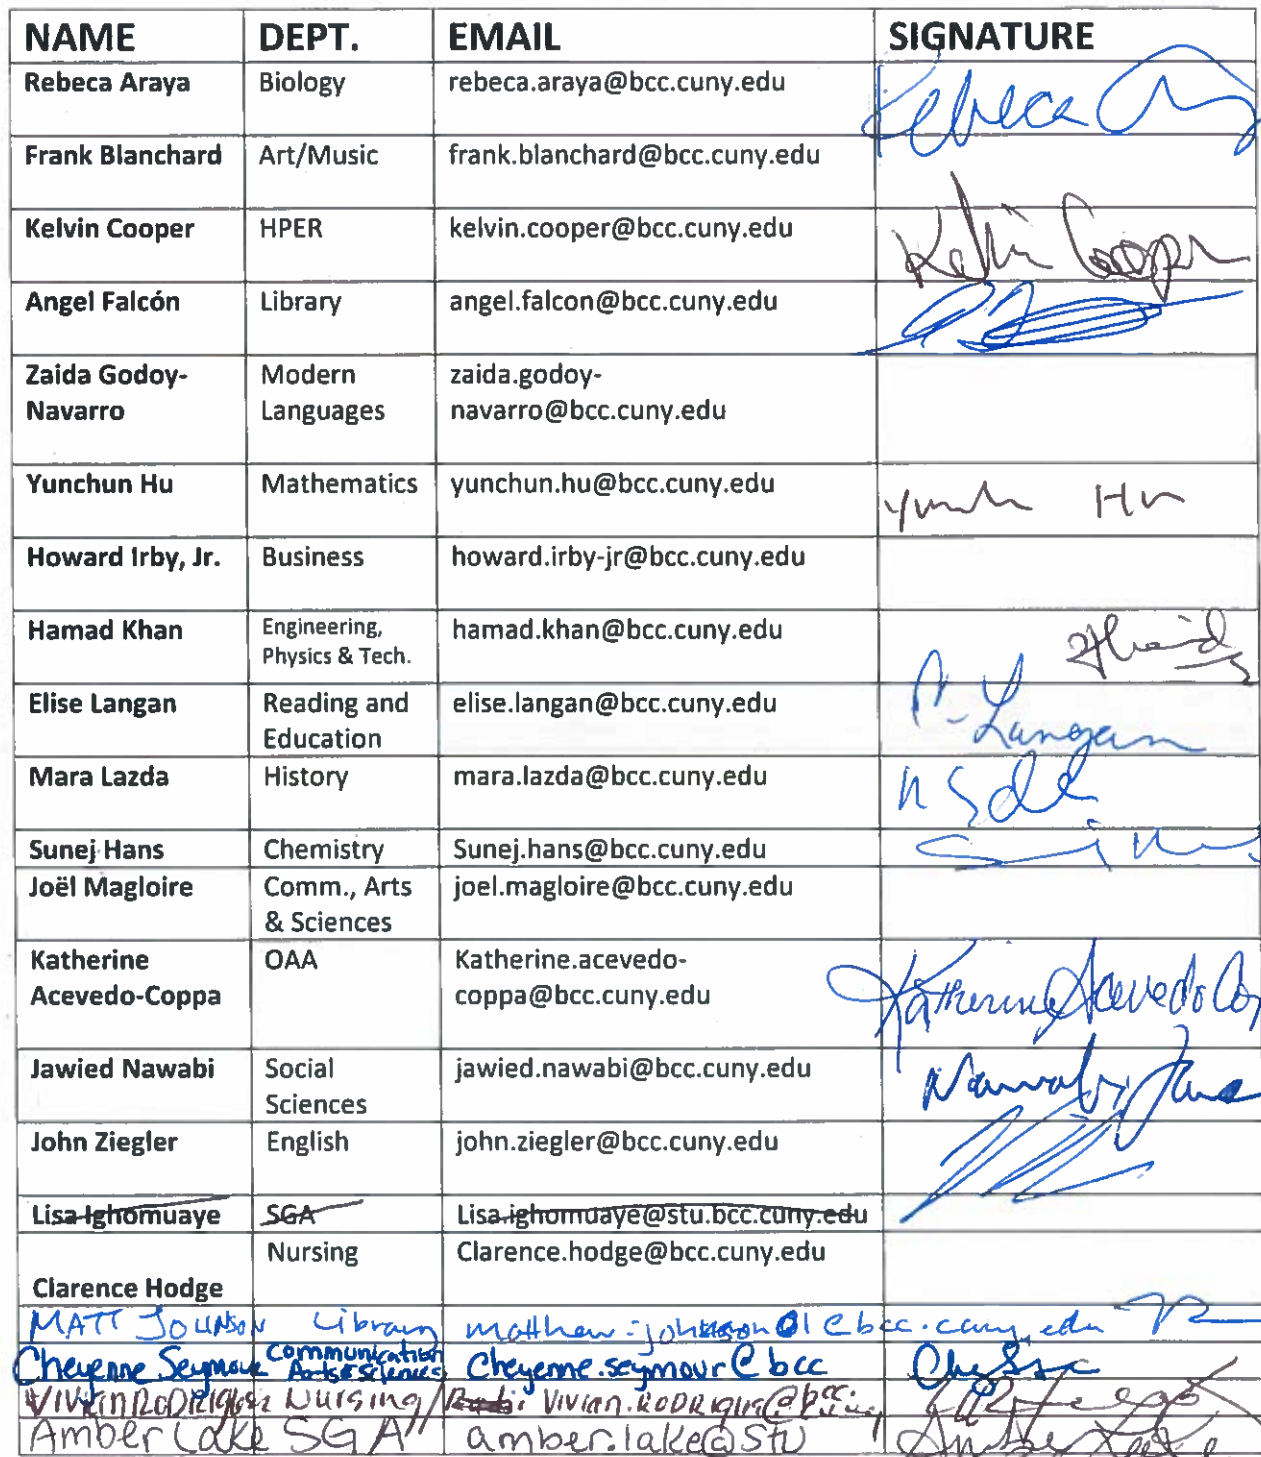 NAME DEPT. EMAIL SIGNATURE
Rebeca Araya Biology rebeca.araya@bcc.cuny.edu Rebeca
Frank Blanchard Art/Music frank.blanchard@bcc.cuny.edu
Kelvin Cooper HPER kelvin.cooper@bcc.cuny.edu Kelvin Cooper
Angel Falcón Library angel.falcon@bcc.cuny.edu
Zaida Godoy- Modern zaida.godoy-
Navarro Languages navarro@bcc.cuny.edu
Yunchun Hu Mathematics yunchun.hu@bcc.cuny.edu Hu
Howard Irby, Jr. Business howard.irby-jr@bcc.cuny.edu
Hamad Khan Engineering, hamad.khan@bcc.cuny.edu
Physics & Tech.
Elise Langan Reading and elise.langan@bcc.cuny.edu Langan
Education
Mara Lazda History mara.lazda@bcc.cuny.edu
Sunej Hans Chemistry Sunej.hans@bcc.cuny.edu
Joël Magloire Comm., Arts joel.magloire@bcc.cuny.edu
& Sciences
Katherine OAA Katherine.acevedo-
Acevedo-Coppa coppa@bcc.cuny.edu Katherine Acevedo Cop
Jawied Nawabi Social jawied.nawabi@bcc.cuny.edu Nawabi
Sciences
John Ziegler English john.ziegler@bcc.cuny.edu
Lisa Ighomuaye SGA Lisa.ighomuaye@stu.bcc.cuny.edu
Nursing Clarence.hodge@bcc.cuny.edu
Clarence Hodge
MATT JOHNSON Library matthew.johnson01@bcc.cuny.edu
Cheyenne Seymour Communication Arts & Sciences Cheyenne.seymour@bcc
VIVIAN RODRIGUEZ Nursing/ Vivian.RODRIGUEZ@bcc.
Amber Lake SGA amber.lake@stu Amber Lake